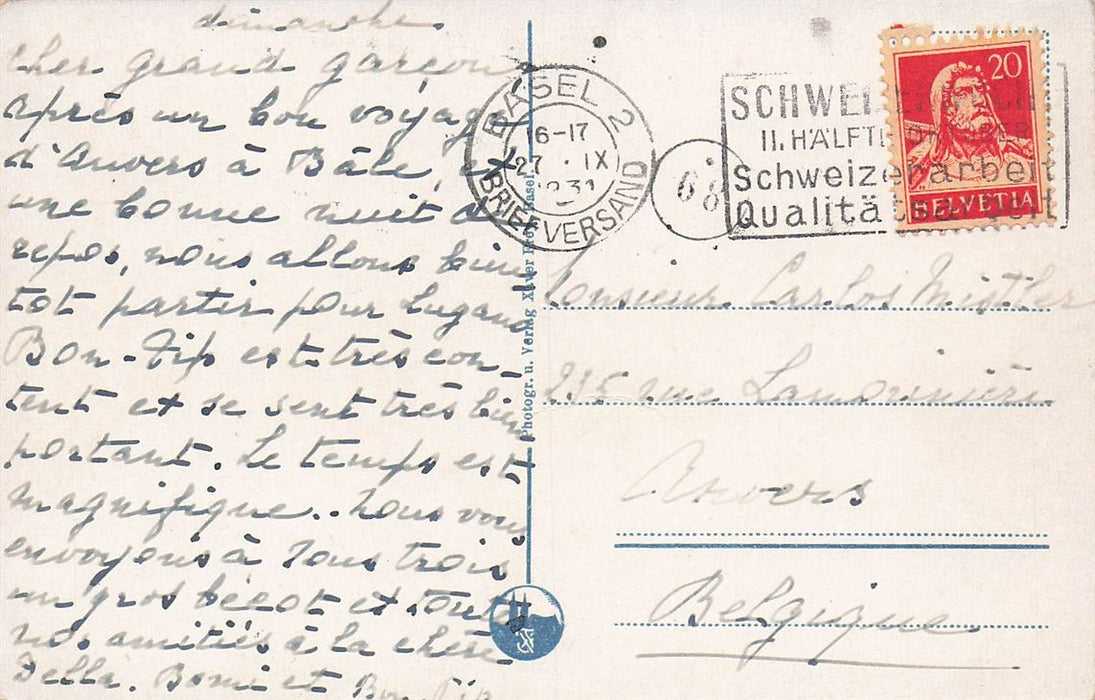 dimanche.
Cher grand garçon
après un bon voyage
d'Anvers à Bâle, et
une bonne nuit de
repos, nous allons bien
tot partir pour Lugano
Bon-Pip est très con-
tent et se sent très bien
portant. Le temps est
magnifique.. Nous vous
envoyons à tous trois
un gros bécot et toutes
nos amitiés à la chère
Della. Bomi et Bon-Pip
Photogr. u. Verlag Xaver Basel
BASEL 2
16-17
27. IX
1931
BRIEFVERSAND
68
SCHWEIZER
II. HÄLFTE OKTOBER
Schweizerarbeit
Qualitätsarbeit
20
HELVETIA
Monsieur Carlos Mistler
235 rue Lamorinière
Anvers
Belgique